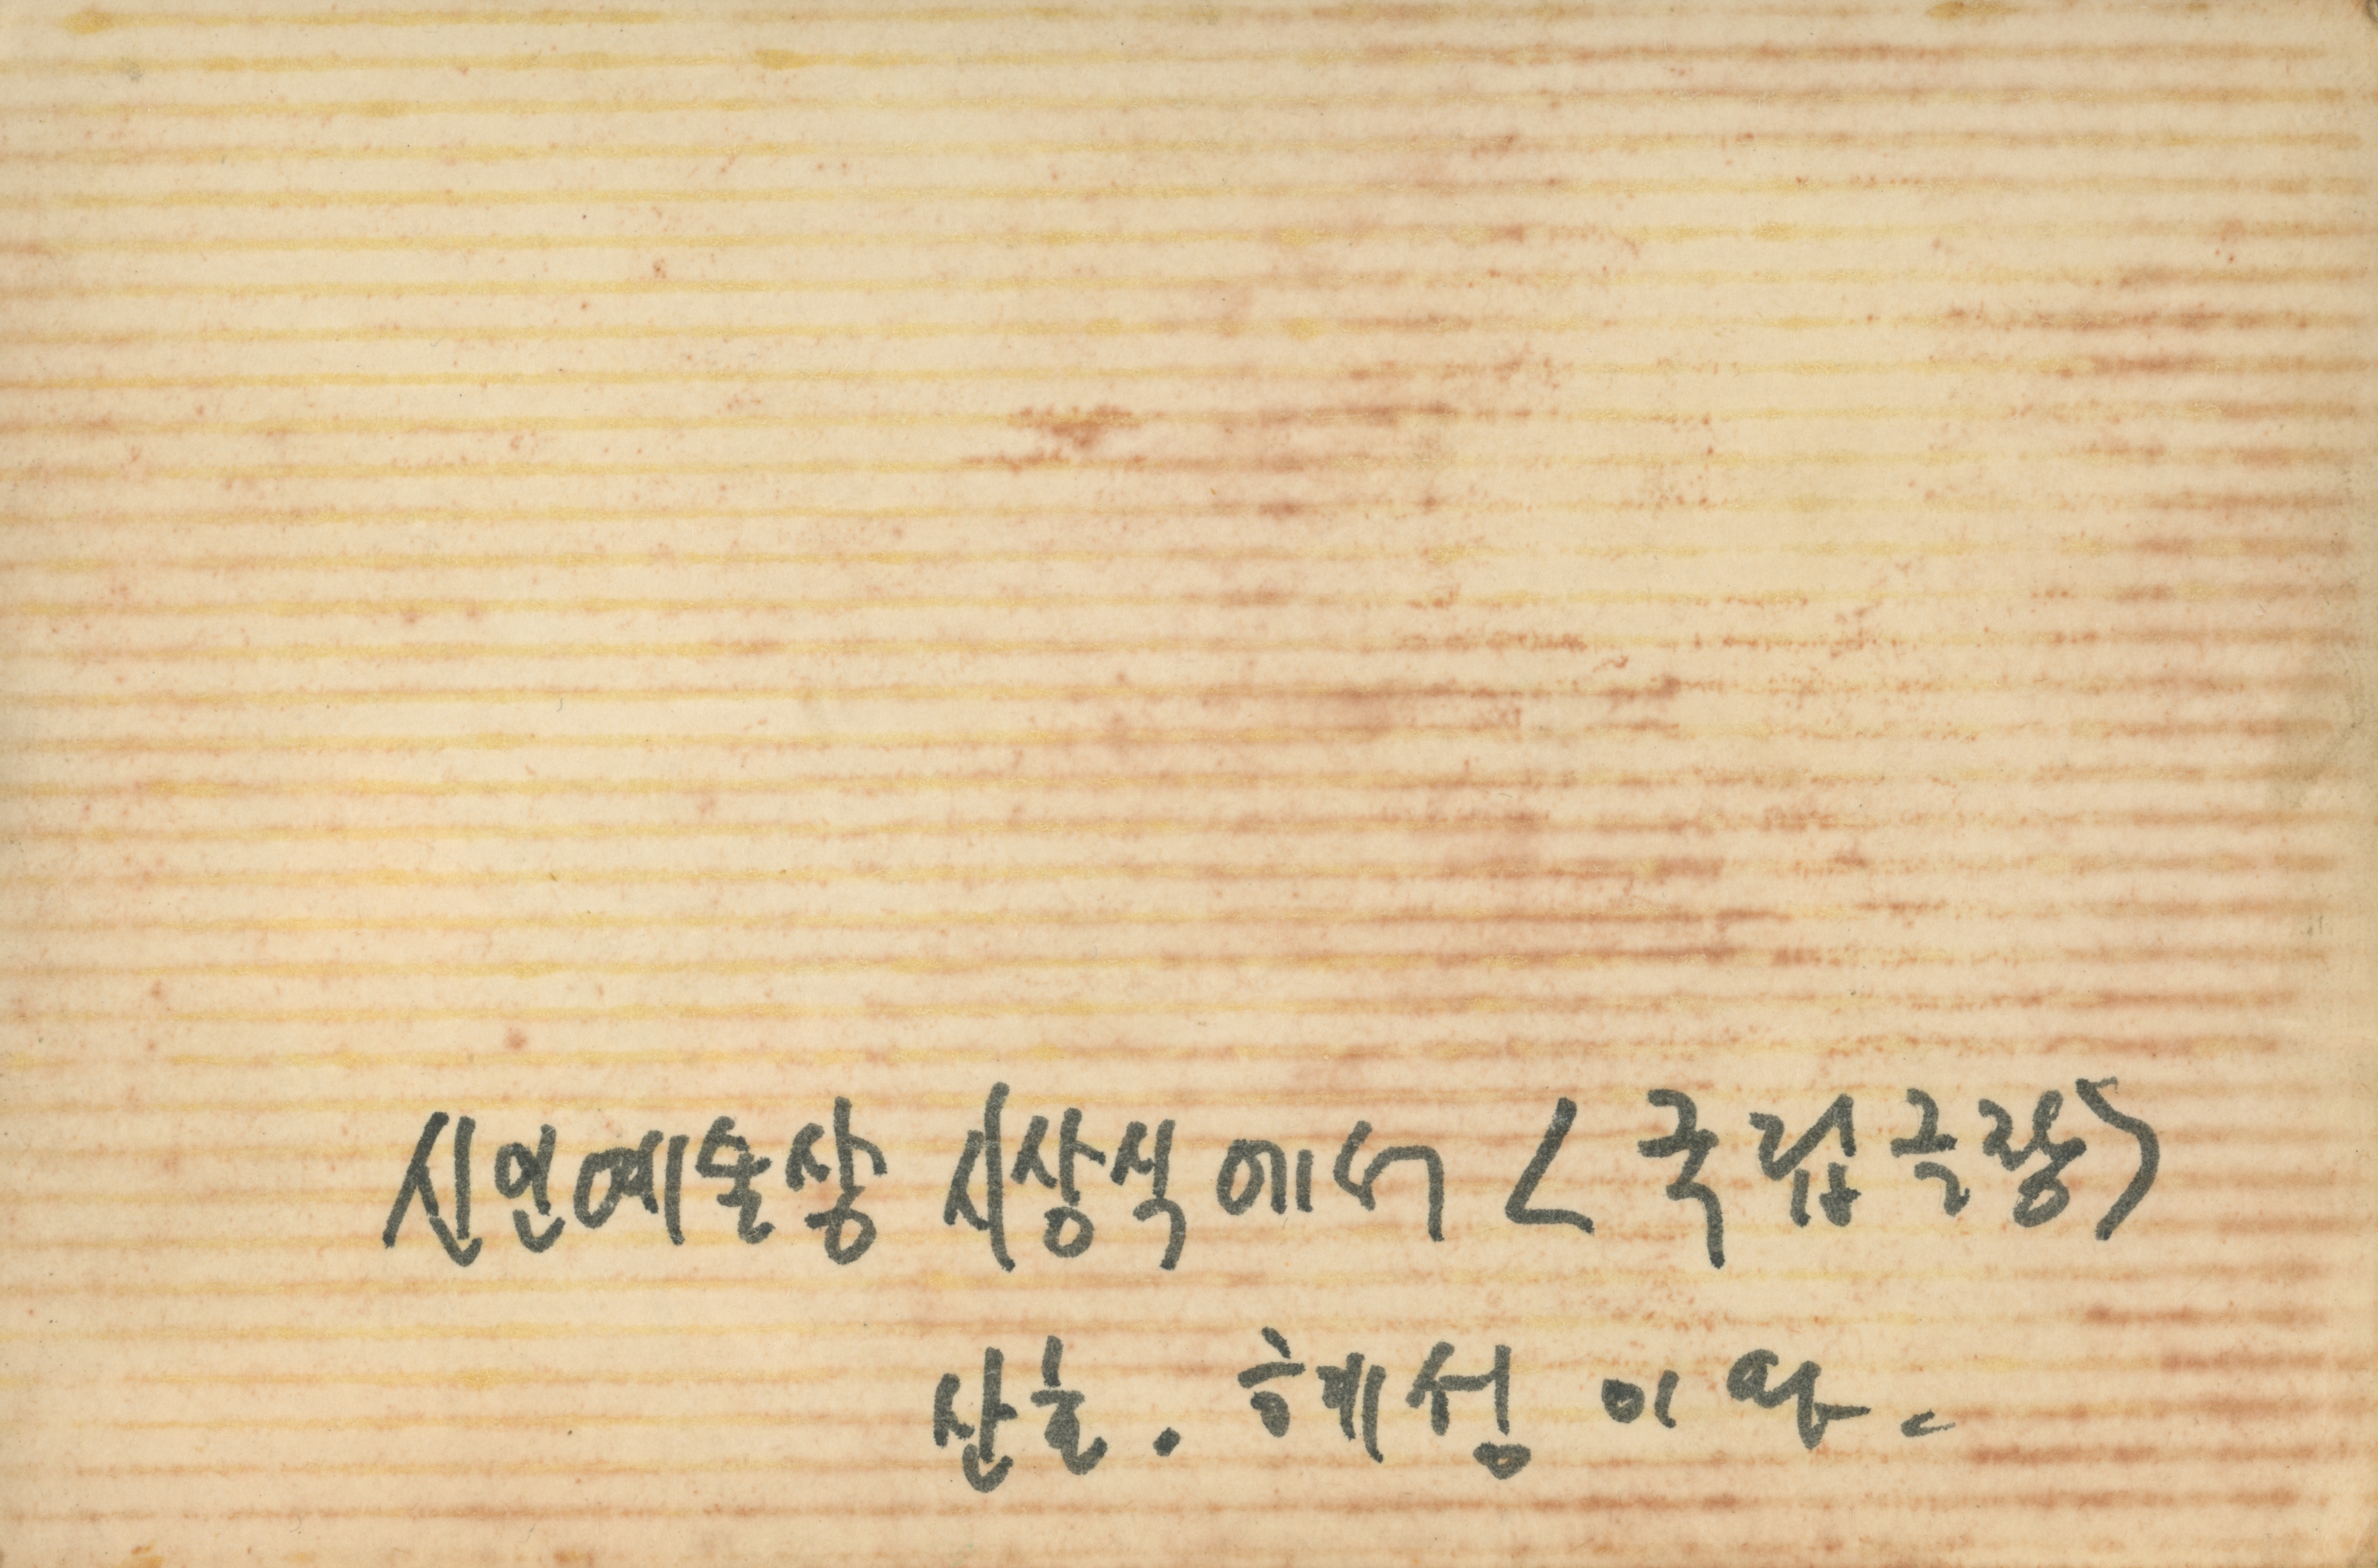 신인예술상 시상식에서 <국립극장>
산호. 혜성 이와.